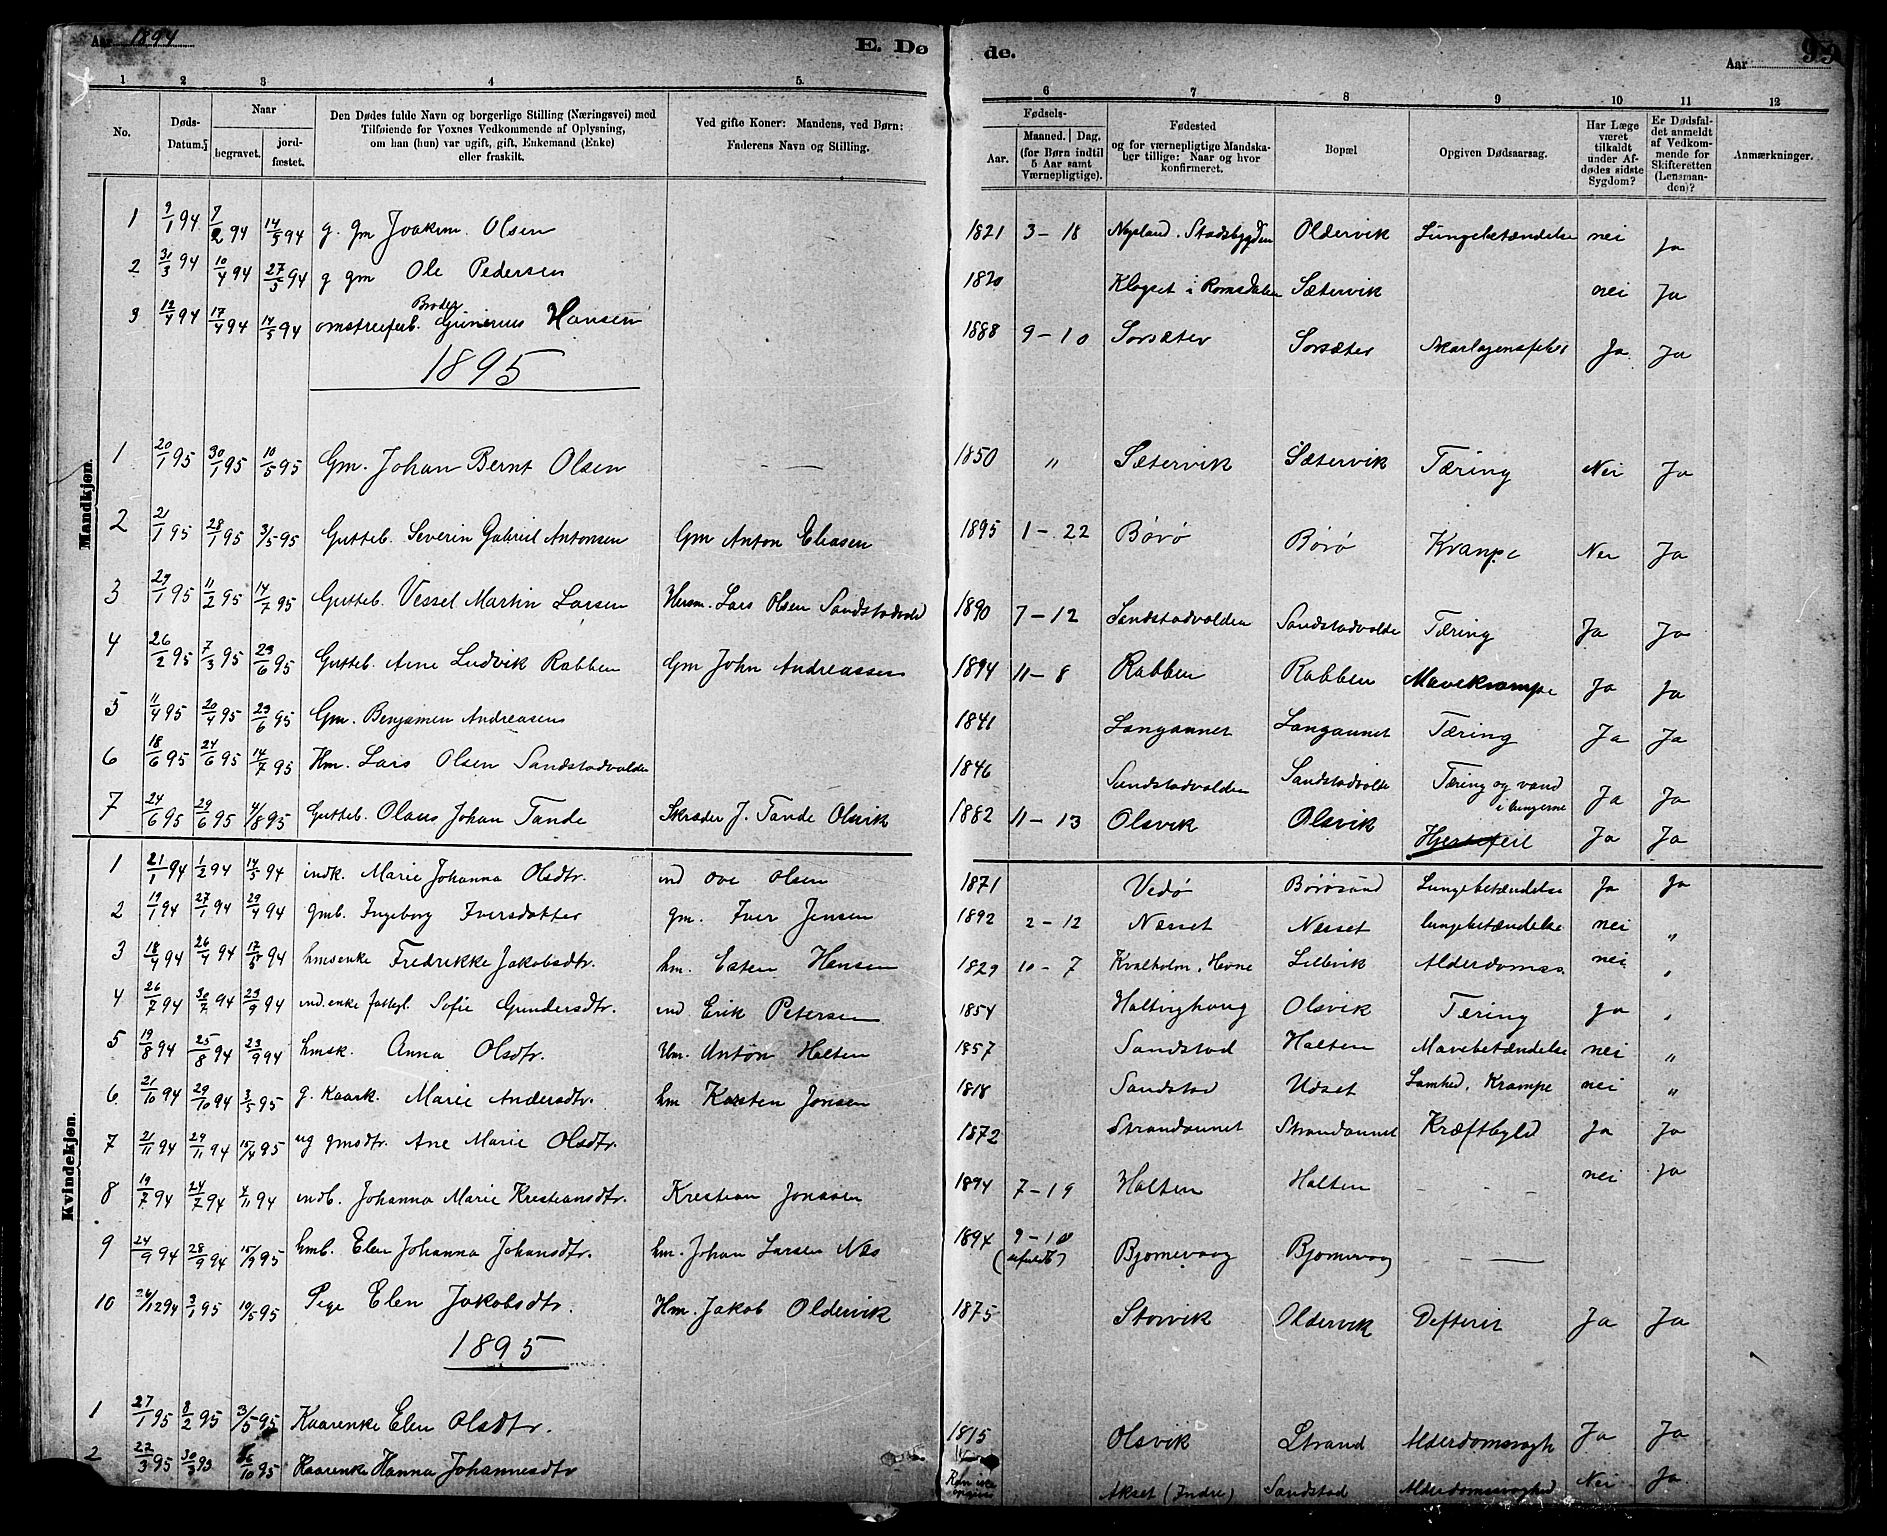 Aar 1894
E. Dø
de.
Aar
1
2
3
4
5.
6
7
8
9
10
11
12
No.
Døds-
Datum.
Naar
begravet.
jord-
fæstet.
Den Dødes fulde Navn og borgerlige Stilling (Næringsvei) med
Tilføiende for Voxnes Vedkommende af Oplysning,
om han (hun) var ugift, gift, Enkemand (Enke)
eller fraskilt.
Ved gifte Koner: Mandens, ved Børn:
Faderens Navn og Stilling.
Fødsels-
Aar.
Maaned. Dag.
(for Børn indtil
5 Aar samt
Værnepligtige).
Fødested
og for værnepligtige Mandska-
ber tillige: Naar og hvor
konfirmeret.
Bopæl
Opgiven Dødsaarsag.
Har Læge
været
tilkaldt
under Af-
dødes sidste
Sygdom?
Er Dødsfal-
det anmeldt
af Vedkom-
mende for
Skifteretten
(Lensman-
den)?
Anmærkninger.
Mandkjøn.
1 9/1 94 7/2 94 14/5 94 g. gm Joakim Olsen 1821 3-18 Stadsbygden Oldervik Lungebetændelse nei Ja
2 31/3 94 10/4 94 27/5 94 g gm Ole Pedersen 1820 i Romsdalen Sætervik nei Ja
Broder
3 12/4 94 17/4 94 14/5 94 Gunerius Hansen 1888 9-10 Sorsæter Sorsæter Ja Ja
1895
1 20/1 95 30/1 95 10/5 95 Gm. Johan Bernt Olsen — 1850 " Sætervik Sætervik Tæring Nei Ja
2 21/1 95 28/1 95 3/5 95 Gutteb. Severin Gabriel Antonsen Gm Anton Eliasen 1895 1-22 Børø Børø Krampe Nei Ja
3 29/1 95 11/2 95 14/7 95 Gutteb. Vessel Martin Larsen Lars Olsen Sandstadvold 1890 7-12 Sandstadvolden Sandstadvolde Tæring Ja Ja
4 26/2 95 7/3 95 23/6 95 Gutteb. Arne Ludvik Rabben Gm John Andreassen 1894 11-8 Rabben Rabben Mavekrampe Ja Ja
5 11/4 95 20/4 95 23/6 95 Gm. Benjamen Andreasens 1841 Langaunet Langaunet Tæring Ja Ja
6 18/6 95 24/6 95 14/7 95 Hm. Lars Olsen Sandstadvolden 1846 Sandstadvolden Sandstadvolde Tæring og vand Ja Ja
i lungerne
7 24/6 95 29/6 95 4/8 95 Gutteb. Olaus Johan Tande Skræder J. Tande Olsvik 1882 11-13 Olsvik Olsvik Hjertefeil Ja Ja
Kvindekjøn.
1 21/1 94 1/2 94 14/5 94 indk. Marie Johanna Olsdtr. ind ove olsen 1871 Vedø Børøsund Lungebetændelse Ja Ja
2 19/1 94 27/1 94 29/4 94 gmb. Ingeborg Iversdatter gm. Iver Jensen 1892 2-12 Næsset Næsset lungebetændelse nei "
3 18/4 94 26/4 94 17/5 94 hmsenke Fredrikke Jakobsdtr. hm. Esten Hansen 1829 10-7 Kvalholm, Hevne Lillevik Alderdomss. nei "
4 26/7 94 30/7 94 23/9 94 ind. enke Sofie Gundersdtr. ind Erik Petersen 1854 Haltinghaug Olsvik Tering ja "
5 19/8 94 25/8 94 23/9 94 hmsk. Anna Olsdtr. Hm. Anton Halten 1857 Sandstad Halten Mavebetændelse nei "
6 21/10 94 29/10 94 3/5 95 g. kaark. Marie Andersdtr. hm Karsten Jonsen 1818 Sandstad Udset Lamhed, Krampe nei "
7 21/11 94 29/11 94 15/4 95 ug gmsdtr. Ane Marie Olsdtr. 1872 Strandaunet Strandaunet Kræftbyld Ja Ja
8 19/7 94 24/7 94 4/11 94 indb. Johanna Marie Kristiansdtr. Kristian Jonassen 1894 7-19 Halten Halten - - - nei Ja
9 24/9 94 28/9 94 15/9 95 hmb. Elen Johanna Johansdtr. hm. Johan Larsen Næs 1894 9-10 Bjørnevaag Bjørnevaag —
10 26/12 94 3/1 95 19/5 95 Pige Elen Jakobsdtr. Hm. Jakob Oldervik 1875 Storvik Oldervik Defterit Ja Ja
1895
1 27/1 95 8/2 95 3/5 95 Kaarenke Elen Olsdtr. 1815 Olsvik Strand Alderdomssvagh Ja Ja
2 22/3 95 30/3 95 Kaarenke Hanna Johannesdtr Akset (Indre) Sandstad Alderdomssvaghed Nei Ja